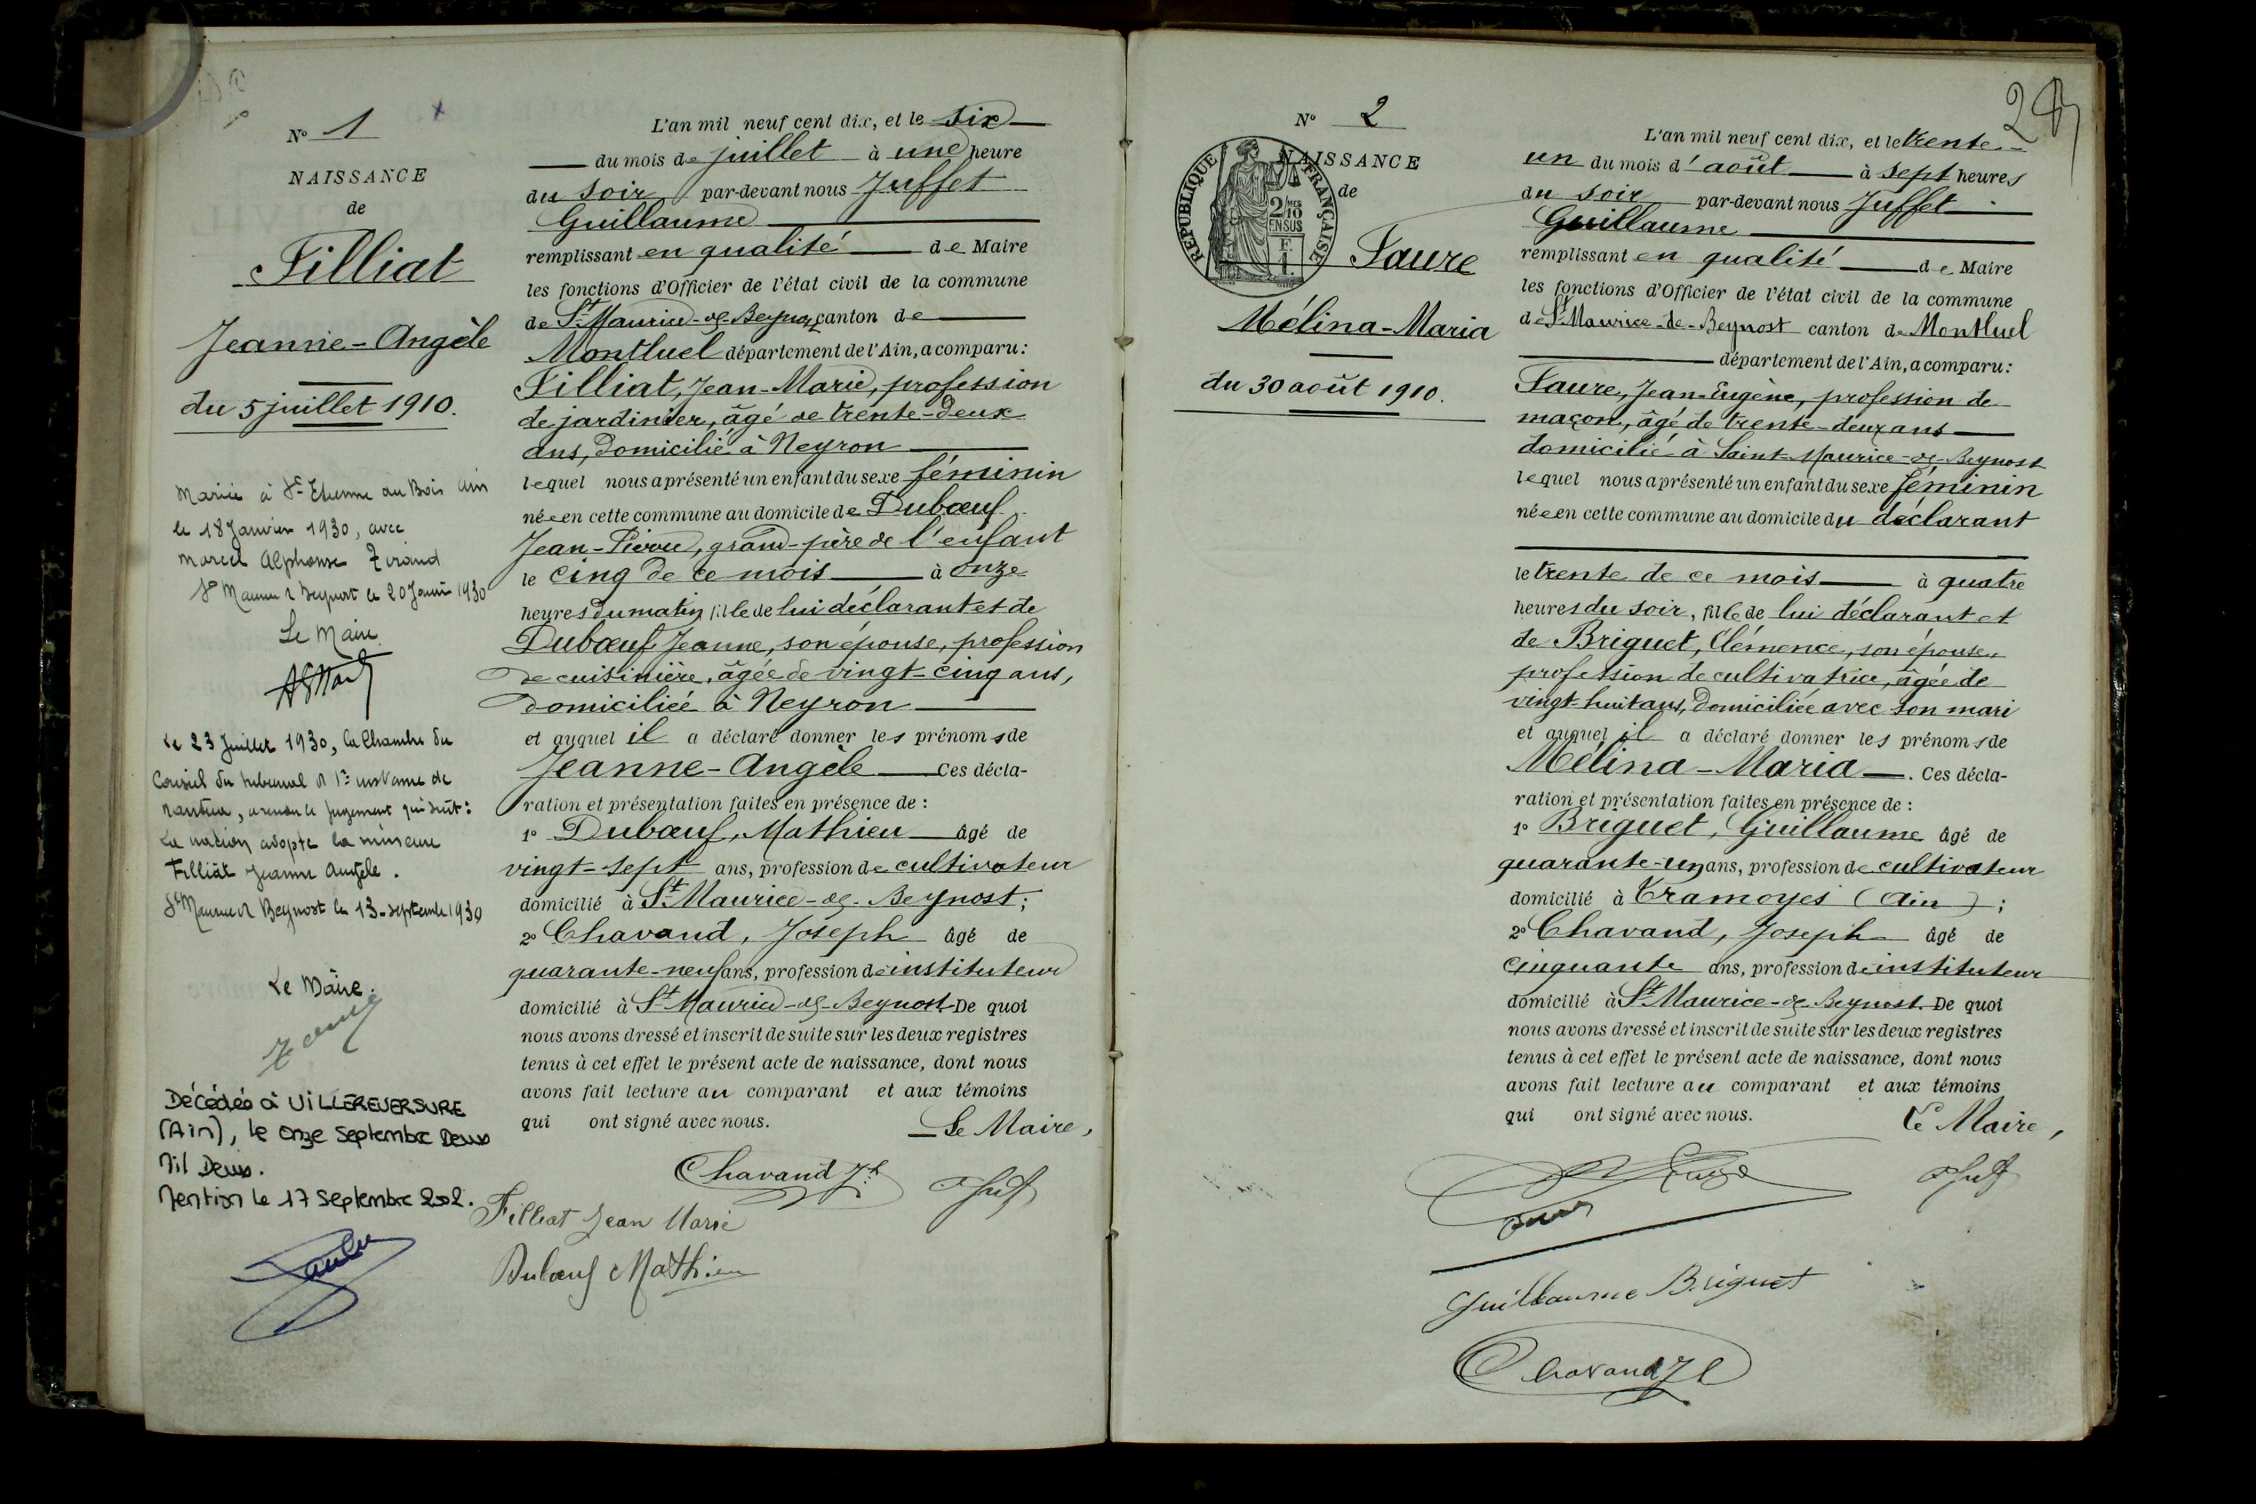 N° 1
NAISSANCE
de
Filliat
Jeanne-Angèle
du 5 juillet 1910.
Mariée à St Etienne au Bois Ain
le 18 Janvier 1930, avec
Marcel Alphonse
St Maurice d Beynost le 20 Janvier 1930
Le Maire
Le 23 Juillet 1930, la Chambre du
Conseil du tribunal d 1re instance de
Nantua, a rendu le jugement qui suit :
La nation adopte la mineure
Filliat Jeanne Angèle.
St Maurice d Beynost le 13 septembre 1930
Le Maire.
Décédée à VILLEREVERSURE
(Ain), le onze Septembre Deux
Mil Deux.
Mention le 17 Septembre 2002.
L'an mil neuf cent dix, et le six
du mois de juillet à une heure
du soir par-devant nous Juffet
Guillaume
remplissant en qualité de Maire
les fonctions d'Officier de l'état civil de la commune
de St Maurice-de-Beynost canton de
Montluel département de l'Ain, a comparu :
Filliat, Jean-Marie, profession
de jardinier, âgé de trente-deux
ans, domicilié à Neyron
lequel nous a présenté un enfant du sexe féminin
née en cette commune au domicile de Dubœuf
Jean-Pierre, grand-père de l'enfant
le cinq de ce mois à onze
heures du matin, fille de lui déclarant et de
Dubœuf Jeanne, son épouse, profession
de cuisinière, âgée de vingt-cinq ans,
domiciliée à Neyron
et auquel il a déclaré donner les prénoms de
Jeanne-Angèle Ces décla-
ration et présentation faites en présence de :
1° Dubœuf, Mathieu âgé de
vingt-sept ans, profession de cultivateur
domicilié à St Maurice-de-Beynost ;
2° Chavand, Joseph âgé de
quarante-neuf ans, profession de instituteur
domicilié à St Maurice-de-Beynost. De quoi
nous avons dressé et inscrit de suite sur les deux registres
tenus à cet effet le présent acte de naissance, dont nous
avons fait lecture au comparant et aux témoins
qui ont signé avec nous.
Le Maire,
Chavand Jh
Filliat Jean Marie
Dubœuf Mathieu
N° 2
NAISSANCE
de
REPUBLIQUE FRANÇAISE
2/10
EN SUS
F.
1.
Faure
Mélina-Maria
du 30 août 1910.
L'an mil neuf cent dix, et le trente-
un du mois d'août à sept heures
du soir par-devant nous Juffet
Guillaume
remplissant en qualité de Maire
les fonctions d'Officier de l'état civil de la commune
de St Maurice-de-Beynost canton de Montluel
département de l'Ain, a comparu :
Faure, Jean-Eugène, profession de
maçon, âgé de trente-deux ans
domicilié à Saint-Maurice-de-Beynost
lequel nous a présenté un enfant du sexe féminin
née en cette commune au domicile du déclarant
le trente de ce mois à quatre
heures du soir, fille de lui déclarant et
de Briguet, Clémence, son épouse,
profession de cultivatrice, âgée de
vingt-huit ans, domiciliée avec son mari
et auquel il a déclaré donner les prénoms de
Mélina-Maria. Ces décla-
ration et présentation faites en présence de :
1° Briguet, Guillaume âgé de
quarante-un ans, profession de cultivateur
domicilié à Tramoyes (Ain) ;
2° Chavand, Joseph âgé de
cinquante ans, profession de instituteur
domicilié à St Maurice-de-Beynost. De quoi
nous avons dressé et inscrit de suite sur les deux registres
tenus à cet effet le présent acte de naissance, dont nous
avons fait lecture au comparant et aux témoins
qui ont signé avec nous.
Le Maire,
Guillaume Briguet
Chavand Jh